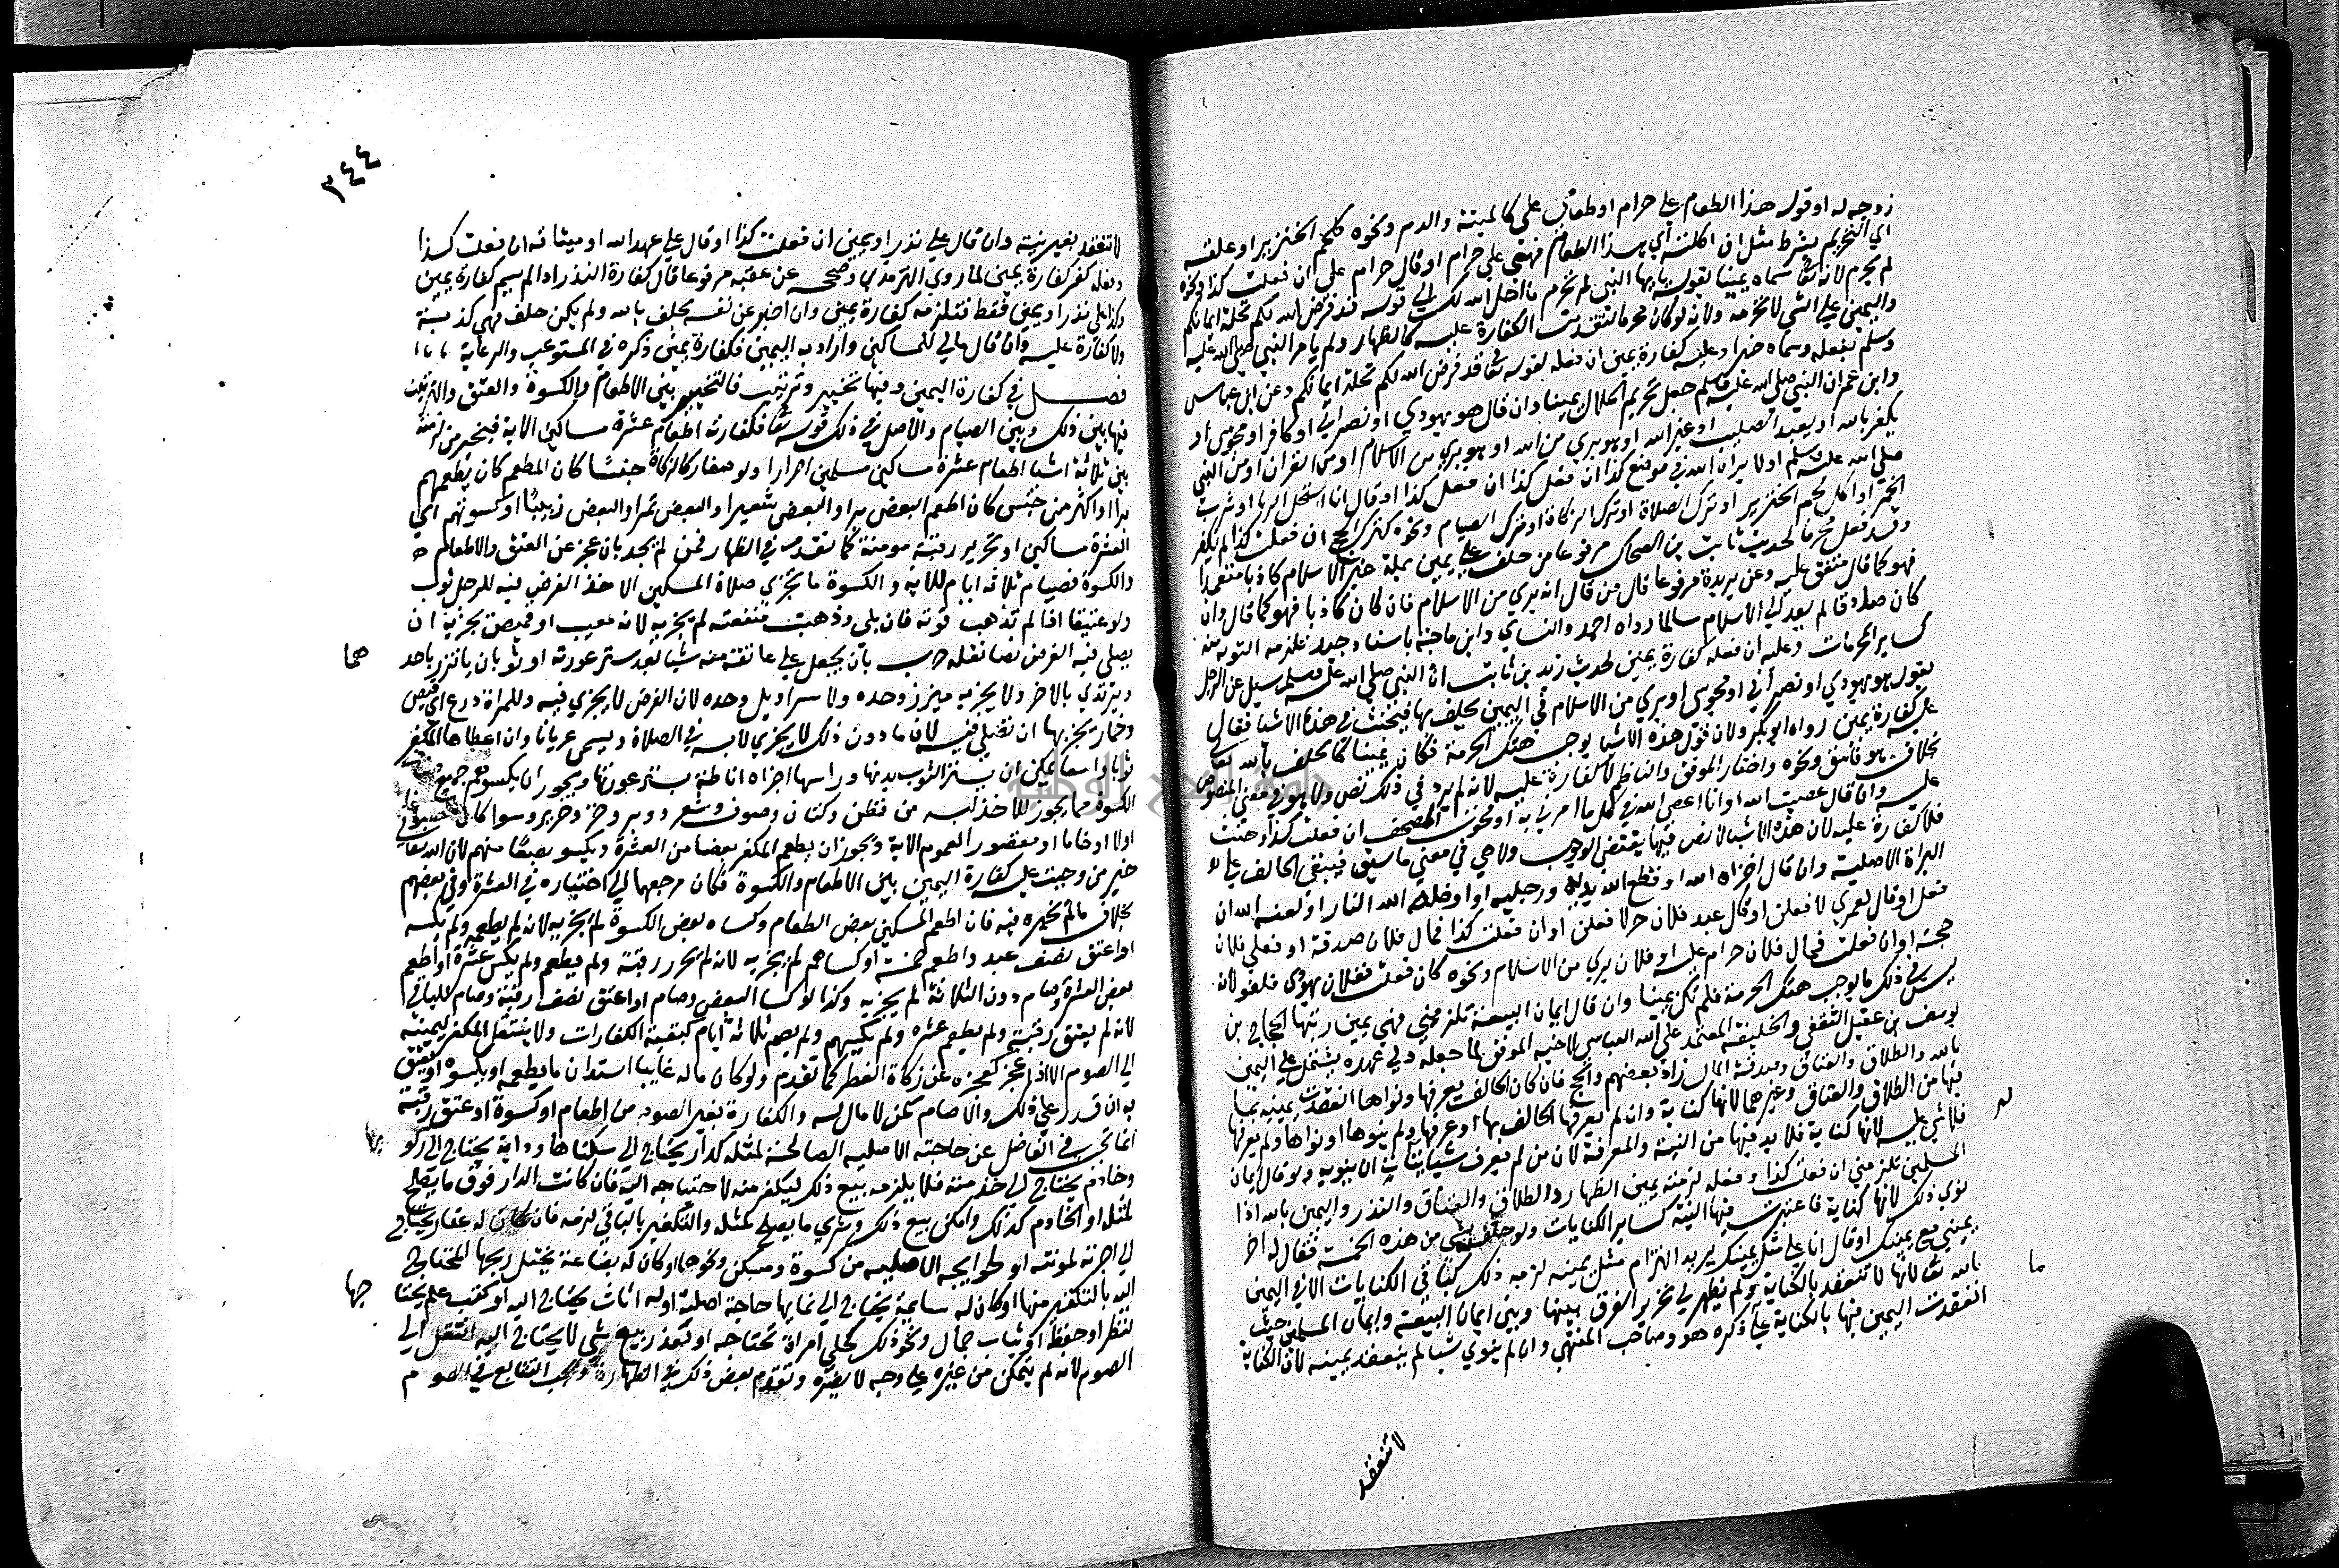 زوجه له او قوله هذا الطعام علي حرام او طعامي علي كالميتة والدم ونحوه كلحم الخنزير او علقه
اي التحريم بشرط مثل ان اكلته اي هذا الطعام فهو علي حرام او قال حرام علي ان فعلت كذا ونحوه
لم يحرم لانه تعالى سماه يمينا بقوله يا ايها النبي لم تحرم ما احل الله لك الى قوله قد فرض الله لكم تحلة ايمانكم
واليمين على الشي لا تحرمه ولانه لو كان محرما لتقدمت الكفارة عليه كالظهار ولم يامر النبي صلى الله عليه
وسلم بفعله وسماه خيرا وعليه كفارة يمين ان فعله لقوله تعالى قد فرض الله لكم تحلة ايمانكم وعن ابن عباس
وابن عمر ان النبي صلى الله عليه وسلم جعل تحريم الحلال يمينا وان قال هو يهودي او نصراني او كافر او مجوسي او
يكفر بالله او يعبد الصليب او غير الله او هو بري من الله او هو بري من الاسلام او من القران او من النبي
صلى الله عليه وسلم او لا يراه الله في موضع كذا ان فعل كذا ان فعل كذا او قال انا استحل الزنا او شرب
الخمر او اكل لحم الخنزير او ترك الصلاة او ترك الزكاة او ترك الصيام ونحوه كترك الحج ان فعلت كذا لم يكفر
وقد فعل محرما لحديث ثابت بن الضحاك مرفوعا من حلف على يمين بملة غير الاسلام كاذبا متعمدا
فهو كما قال متفق عليه وعن بريدة مرفوعا قال من قال انه بري من الاسلام فان كان كاذبا فهو كما قال وان
كان صادقا لم يعد الى الاسلام سالما رواه احمد والنساي وابن ماجة باسناد جيد تلزمه التوبة منه
كساير المحرمات وعليه ان فعله كفارة يمين لحديث زيد بن ثابت ان النبي صلى الله عليه وسلم سيل عن الرجل
يقول هو يهودي او نصراني او مجوسي او بري من الاسلام في اليمين يحلف بها فيحنث في هذه الاشيا فقال
عليه كفارة يمين رواه ابو بكر ولان قول هذه الاشيا يوجب هتك الحرمة فكان يمينا كالحلف بالله تعالى
بخلاف هو فاسق ونحوه واختار الموفق والناظم لا كفارة عليه لانه لم يرد في ذلك نص ولا هو في معنى المنصوص
عليه وان قال عصيت الله او انا اعصي الله في كل ما امرني به او محوت المصحف ان فعلت كذا وحنث
فلا كفارة عليه لان هذه الاشيا لا نص فيها يقتضي الوجوب ولا هي في معنى ما سبق فيبقى الحالف على
البراة الاصلية وان قال اخزاه الله او قطع الله يديه ورجليه او ادخله الله النار او لعنه الله ان
فعل او قال لعمري لافعلن او قال عبد فلان حر لافعلن او ان فعلت كذا فمال فلان صدقة او فعلى فلان
حجة او ان فعلت فمال فلان حرام عليه او فلان بري من الاسلام ونحوه كان فعلت ففلان يهودي فلغو لانه
ليس في ذلك ما يوجب هتك الحرمة فلم تكن يمينا وان قال ايمان البيعة تلزمني فهي يمين رتبها الحجاج بن
يوسف بن عقيل الثقفي والخليفة المعتمد على الله العباسي لاخيه الموفق لما جعله ولي عهده يشتمل على اليمين
بالله والطلاق والعتاق وصدقة المال زاد بعضهم والحج فان كان الحالف يعرفها ونواها انعقدت يمينه بما
فيها من الطلاق والعتاق وغيرهما لانها كناية وان لم يعرفها الحالف بها او عرفها ولم ينوها او نواها ولم يعرفها
فلا شي عليه لانها كناية فلا بد فيها من النية والمعرفة لان من لم يعرف شيا لم يتات ان ينويه ولو قال ايمان
المسلمين تلزمني ان فعلت كذا وفعله لزمته يمين الظهار والطلاق والعتاق والنذر واليمين بالله اذا
نوى ذلك لانها كناية فاعتبرت فيها النية كساير الكنايات ولو حلف بشي من هذه الخمسة فقال له اخر
يميني مع يمينك او قال انا على مثل يمينك يريد التزام مثل يمينه لزمه ذلك كباقي الكنايات الا في اليمين
بالله تعالى لانها لا تنعقد بالكناية ولم يظهر لي تحرير الفرق بينها وبين ايمان البيعة وايمان المسلمين حيث
انعقدت اليمين فيها بالكناية على ما ذكره هو وصاحب المنتهى وان لم ينوي شيا لم ينعقد يمينه لان الكناية
له
ما
لا تنعقد
٣٤٤
لا تنعقد بغير نية وان قال علي نذر او يمين ان فعلت كذا او قال علي عهد الله او ميثاقه ان فعلت كذا
وفعله كفر كفارة يمين لما روى الترمذي وصححه عن عقبه مرفوعا قال كفارة النذر اذا لم يسم كفارة يمين
وكذا علي نذر او يمين فقط فتلزمه كفارة يمين وان اخبر عن نفسه بحلف بالله ولم يكن حلف فهي كذبة
ولا كفارة عليه وان قال مالي للمساكين واراد به اليمين فكفارة يمين ذكره في المستوعب والرعاية
فصل في كفارة اليمين وفيها تخيير وترتيب فالتخيير بين الاطعام والكسوة والعتق والترتيب
فيها بين ذلك وبين الصيام والاصل في ذلك قوله تعالى فكفارته اطعام عشرة مساكين الاية فيخير من لزمته
بين ثلاثة اشيا اطعام عشرة مساكين مسلمين احرارا ولو صغارا كالزكاة جنسا كان المطعم كان يطعمهم
برا او اكثر من جنس كان اطعم البعض برا والبعض شعيرا والبعض تمرا والبعض زبيبا او كسوتهم اي
العشرة مساكين او تحرير رقبة مومنة كما تقدم في الظهار فمن لم يجد بان عجز عن العتق والاطعام
والكسوة فصيام ثلاثة ايام للاية والكسوة ما تجزي صلاة المسكين الاخذ الفرض فيه للرجل ثوب
ولو عتيقا اذا لم تذهب قوته فان بلي وذهبت منفعته لم يجزيه لانه معيب او قميص يجزيه ان
يصلي فيه الفرض نصا نقله حرب بان يجعل على عاتقه منه شيا بعد ستر عورته او ثوبان ياتزر باحد
هما
ويرتدي بالاخر ولا يجزيه ميزر وحده ولا سراويل وحده لان الفرض لا يجزي فيه وللمراة درع اي قميص
وخمار يجزيها ان تصلي فيه لان ما دون ذلك لا يجزي لابسه في الصلاة ويسمى عريانا وان اعطاها المكفر
ثوبا واسعا يمكن ان يستر الثوب بدنها وراسها اجزاه اناطة بستر عورتها ويجوز ان يكسوهم جميع
الكسوة مما يجوز للاخذ لبسه من قطن وكتان وصوف وشعر ووبر وخز وحرير وسوا كان
اولا او خاما او مقصورا لعموم الاية ويجوز ان يطعم المكفر بعضا من العشرة ويكسو بعضا منهم لان الله تعالى
خير من وجبت عليه كفارة اليمين بين الاطعام والكسوة فكان مرجعها الى اختياره في العشرة وفي بعضهم
بخلاف ما لم يخيره فيه فان اطعم المسكين بعض الطعام وكساه بعض الكسوة لم يجزيه لانه لم يطعمه ولم يكسه
او اعتق نصف عبد واطعم خمسة او كساهم لم يجزيه لانه لم يحرر رقبة ولم يطعم ولم يكس عشرة او اطعم
بعض العشرة وصام دون الثلاثة لم يجزيه وكذا لو كسا البعض وصام او اعتق نصف رقبة وصام للباقي
لانه لم يعتق رقبة ولم يطعم عشره ولم يكسهم ولم يصم ثلاثة ايام كبقية الكفارات ولا ينتقل المكفر ليمينه
الى الصوم الا اذا عجز كعجزه عن زكاة الفطر كما تقدم ولو كان ماله غايبا استدان ما يطعمه او يكسوه او يعتق
به ان قدر على ذلك والا صام كمن لا مال له والكفارة بغير الصوم من اطعام او كسوة او عتق رقبة
انما تجب في الفاضل عن حاجته الاصلية الصالحة لمثله كدار يحتاج الى سكناها ودابة يحتاج الى ركو
بها
وخادم يحتاج الى خدمته فلا يلزمه بيع ذلك ليكفر منه لاحتياجه اليه فان كانت الدار فوق ما يصلح
لمثله او الخادم كذلك وامكن بيع ذلك وشري ما يصلح لمثله والتكفير بالباقي لزمه فان كان له عقار يحتاج
الى اجرته لمونته او لحوايجه الاصلية من كسوة ومسكن ونحوها او كان له بضاعة يختل ربحها المحتاج
اليه بالتكفير منها او كان له سايمة يحتاج الى نمايها حاجة اصلية او له اثاث يحتاج اليه او كتب علم يحتا
جها
لنظر او حفظ او ثياب جمال ونحو ذلك كحلي امراة تحتاجه او تعذر بيع شي لا يحتاج اليه انتقل الى
الصوم لانه لم يتمكن من غيره على وجه لا يضره وتقدم بعض ذلك في الظهار ويجب التتابع في الصوم